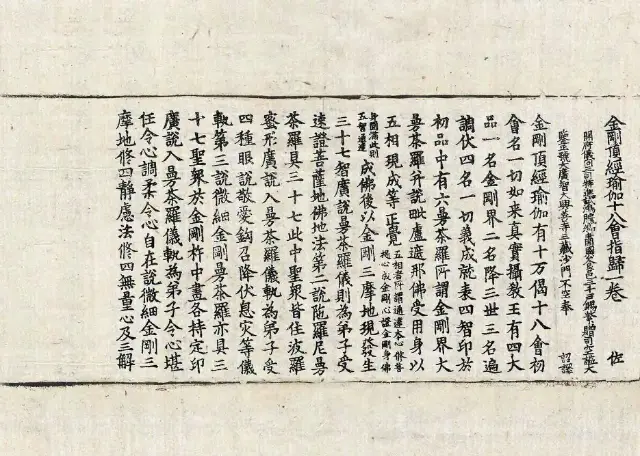 金剛頂經瑜伽十八會指歸一卷 佐
開府儀同三司特進試鴻臚卿肅國公食邑三千戶賜紫贈司空謚大
鑒正號大廣智大興善寺三藏沙門不空奉 詔譯
金剛頂經瑜伽有十万偈十八會初
會名一切如來真實攝教王有四大
品一名金剛界二名降三世三名遍
調伏四名一切義成就表四智印於
初品中有六曼荼羅所謂金剛界大
曼荼羅并説毗盧遮那佛受用身以
五相現成等正覺 五相者所謂通達本心修菩提心成金剛心證金剛身佛
身圓滿此則五智通達 成佛後以金剛三摩地現發生
三十七智廣說曼荼羅儀則為弟子受
速證菩薩地佛地法第二說陁羅尼曼
荼羅具三十七此中聖衆皆住波羅
蜜形廣説入曼荼羅儀軌為弟子受
四種眼說敬愛鈎召降伏息灾等儀
軌第三說微細金剛曼荼羅亦具三
十七聖衆於金剛杵中畫各持定印
廣說入曼荼羅儀軌為弟子令心堪
任令心調柔令心自在說微細金剛三
摩地修四靜慮法修四無量心及三解